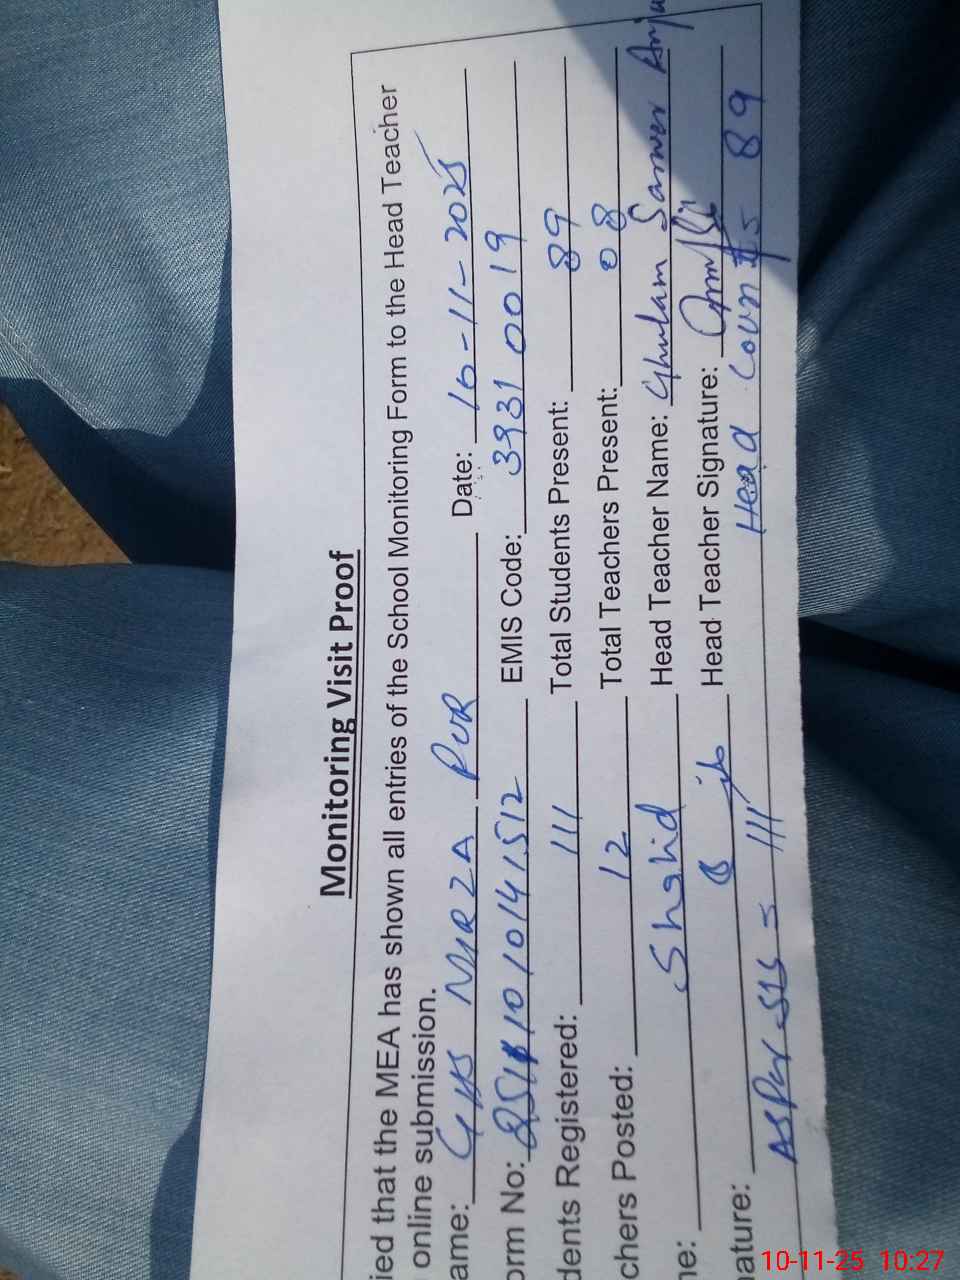 Monitoring Visit Proof
ied that the MEA has shown all entries of the School Monitoring Form to the Head Teacher
online submission.
ame: GHS MIRZA PUR Date: 10-11-2025
orm No: 1010141512 EMIS Code: 39310019
dents Registered: 111 Total Students Present: 89
chers Posted: 12 Total Teachers Present: 08
ne: Shahid Head Teacher Name: Ghulam Sarwer Anju
ature: Head Teacher Signature:
AS Per SIS = 111 Head Count = 89
10-11-25 10:27